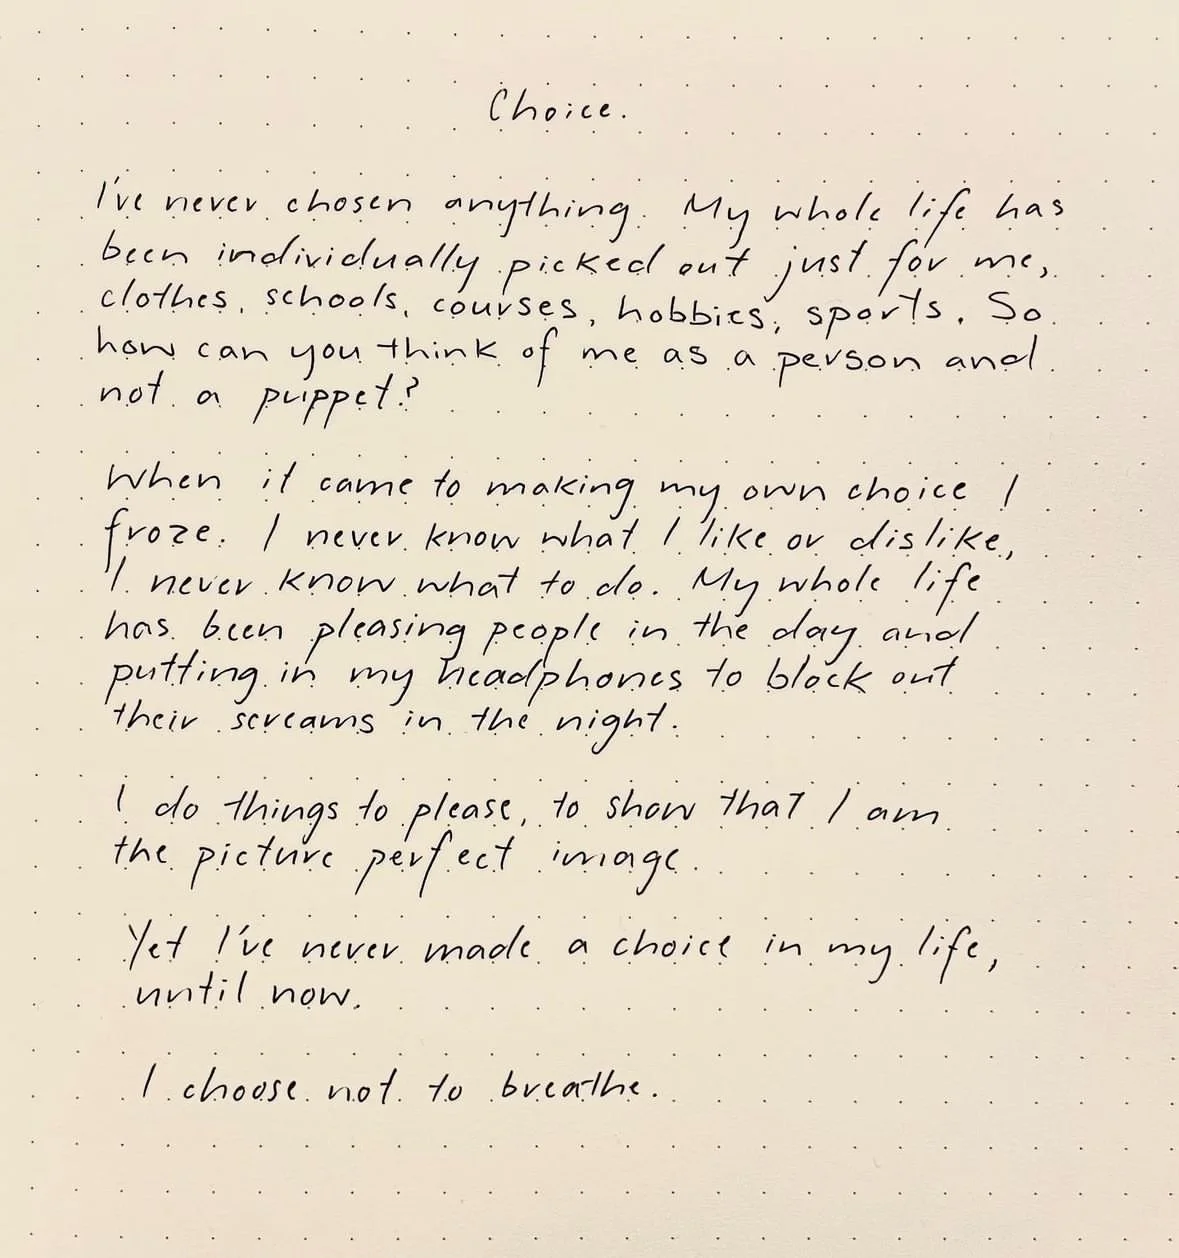 Choice.
I've never chosen anything. My whole life has
been individually picked out just for me,
clothes, schools, courses, hobbies, sports. So
how can you think of me as a person and
not a puppet?
When it came to making my own choice I
froze. I never know what I like or dislike,
I never know what to do. My whole life
has been pleasing people in the day and
putting in my headphones to block out
their screams in the night.
I do things to please, to show that I am
the picture perfect image.
Yet I've never made a choice in my life,
until now.
I choose not to breathe.